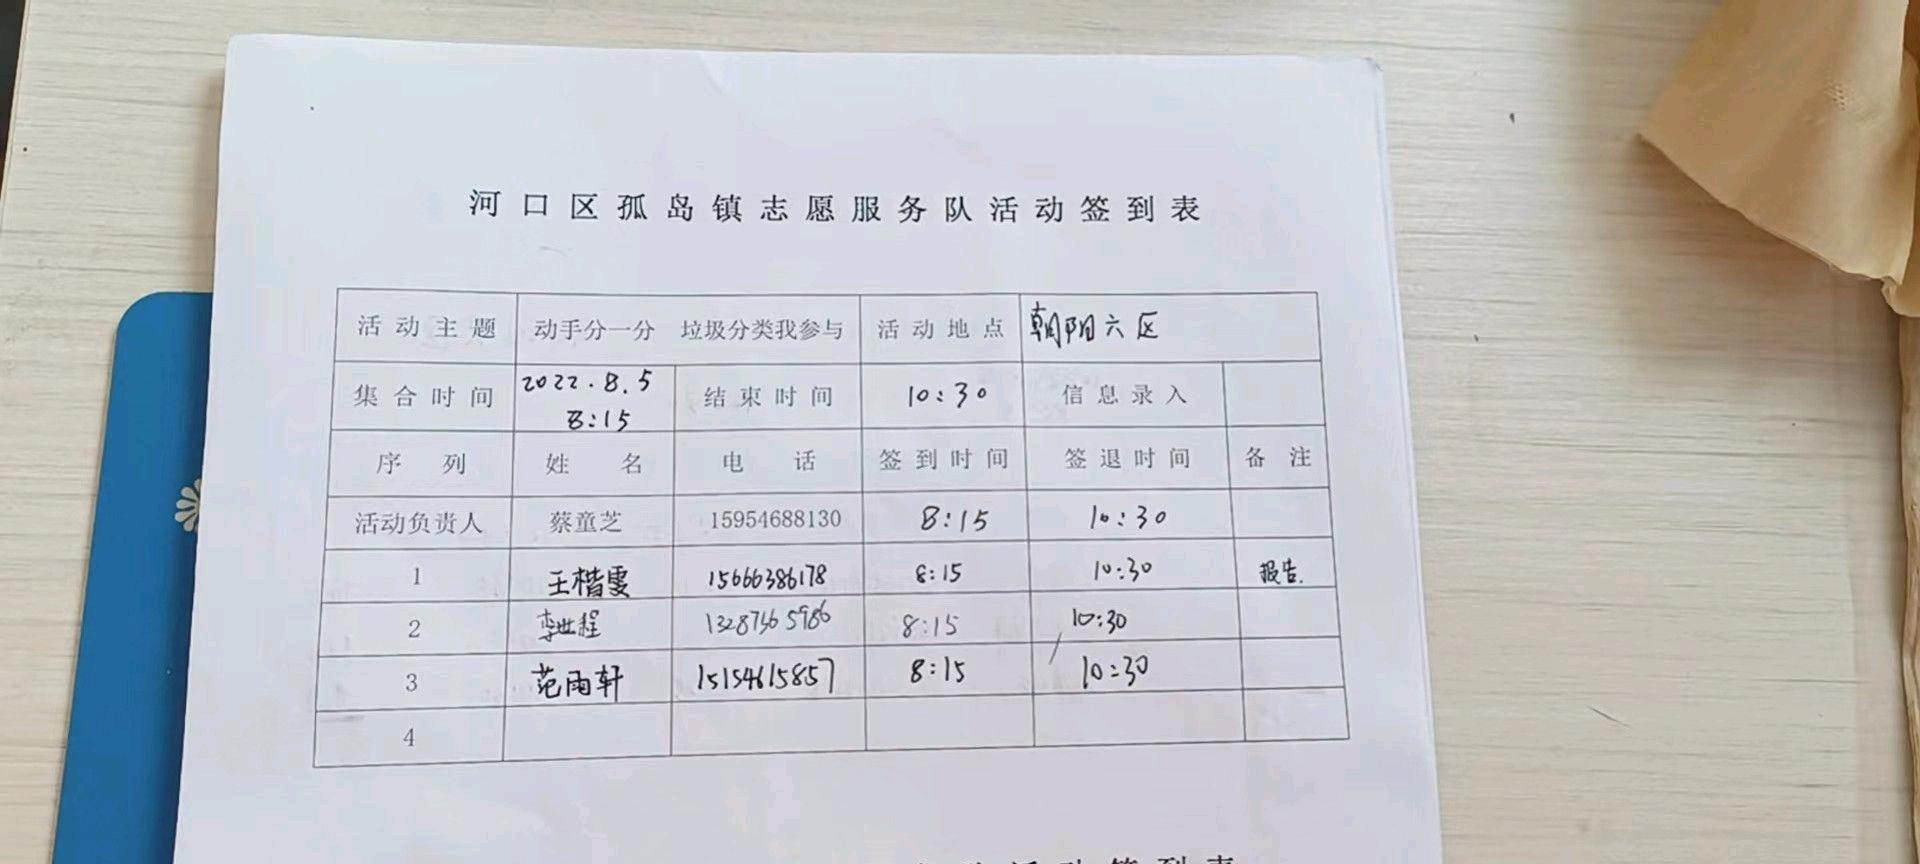 河口区孤岛镇志愿服务队活动签到表
活动主题 动手分一分 垃圾分类我参与 活动地点 朝阳六区
集合时间 2022.8.5 8:15 结束时间 10:30 信息录入
序列 姓名 电话 签到时间 签退时间 备注
活动负责人 蔡童芝 15954688130 8:15 10:30
1 王楷雯 15666386178 8:15 10:30 报告.
2 李世程 8:15 10:30
3 范雨轩 15154615857 8:15 10:30
4
活动签到表